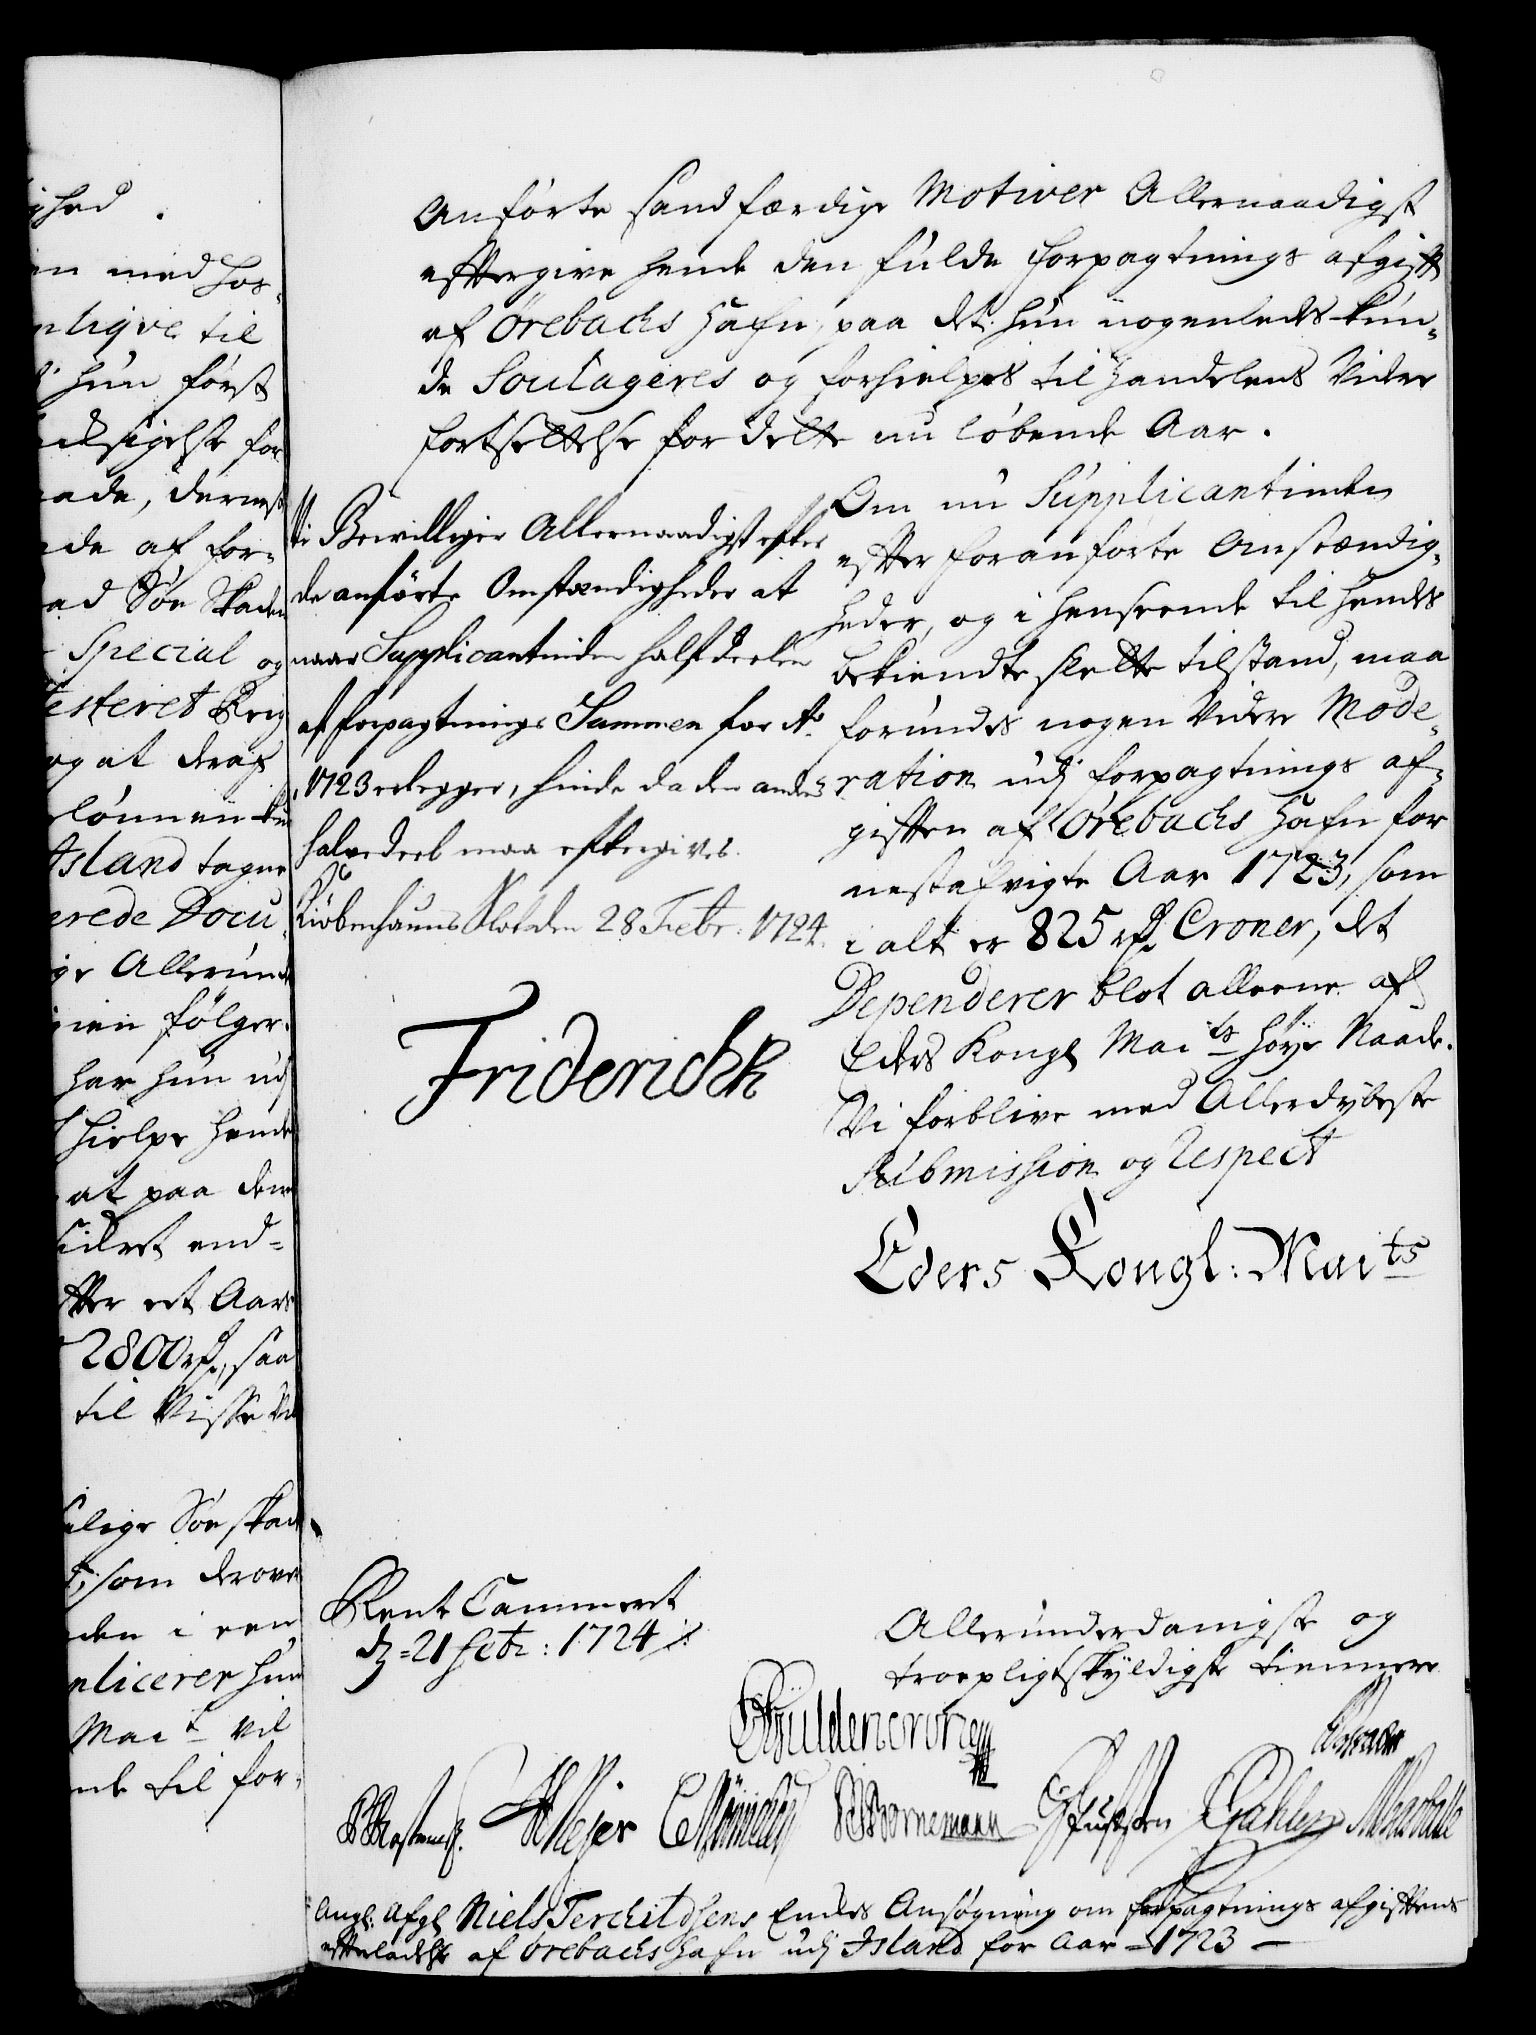 ghed.
en med hos-
nligve til
hun först
udsigelse for
aade, dernest
de af for-
ad Söe Skaden
Special og
esteret
og at deraf
lönnen kun
Island tagne
erede Docu-
ge Allerund
ien fölger.
har hun udj
hielpe hende
at paa den
sidst end-
fter et Aars
2800 rd., saa
til Visse
lige Söe skade
som derover
den i een
plicerer hun
Mait vil
nde til for-
Anförte sandfærdige Motiver Allernaadigst
efftergive hende den fulde forpagtnings afgifft
af Örebachs Hafn, paa det hun nogenleedes kun-
de Soulageres og forhielpes til Handelens Videre
fortsettelse for dette nu löbende Aar.
Vi Bewilliger Allernaadigst efter
de anförte Omstændigheder at
naar Supplicantinden halfdeelen
af forpagtnings Summen for Ao.
1723 erlegger, hinde da den anden
halvedeel maa eftergives.
Kiöbenhauns Slot den 28 Febr: 1724.
Friderich R
Om nu Supplicantinden
effter foranförte Omstændig-
heder, og i henseende til hendes
bekiendte slette tilstand, maa
forundes nogen Videre Mode-
ration udj forpagtnings af-
gifften af Örebachs Hafn for
nestafvigte Aar 1723, som
i alt er 825 rd. Croner, det
Dependerer blot alleene af
Eders Kongl Maits höye Naade.
Vi forblive med Allerdybeste
Submission og Respect
Eders Kongl: Maits
Rent Cammeret
d. 21 Febr: 1724
Allerunderdanigste og
troepligtskyldigste tiennere
Güldencrone
Mejer
Bornemann
Angl: Afgl Niels Terchildsens Enckes Ansögning om forpagtnings afgifftens
effterladelse af Örebachs Hafn udj Island for Aar 1723